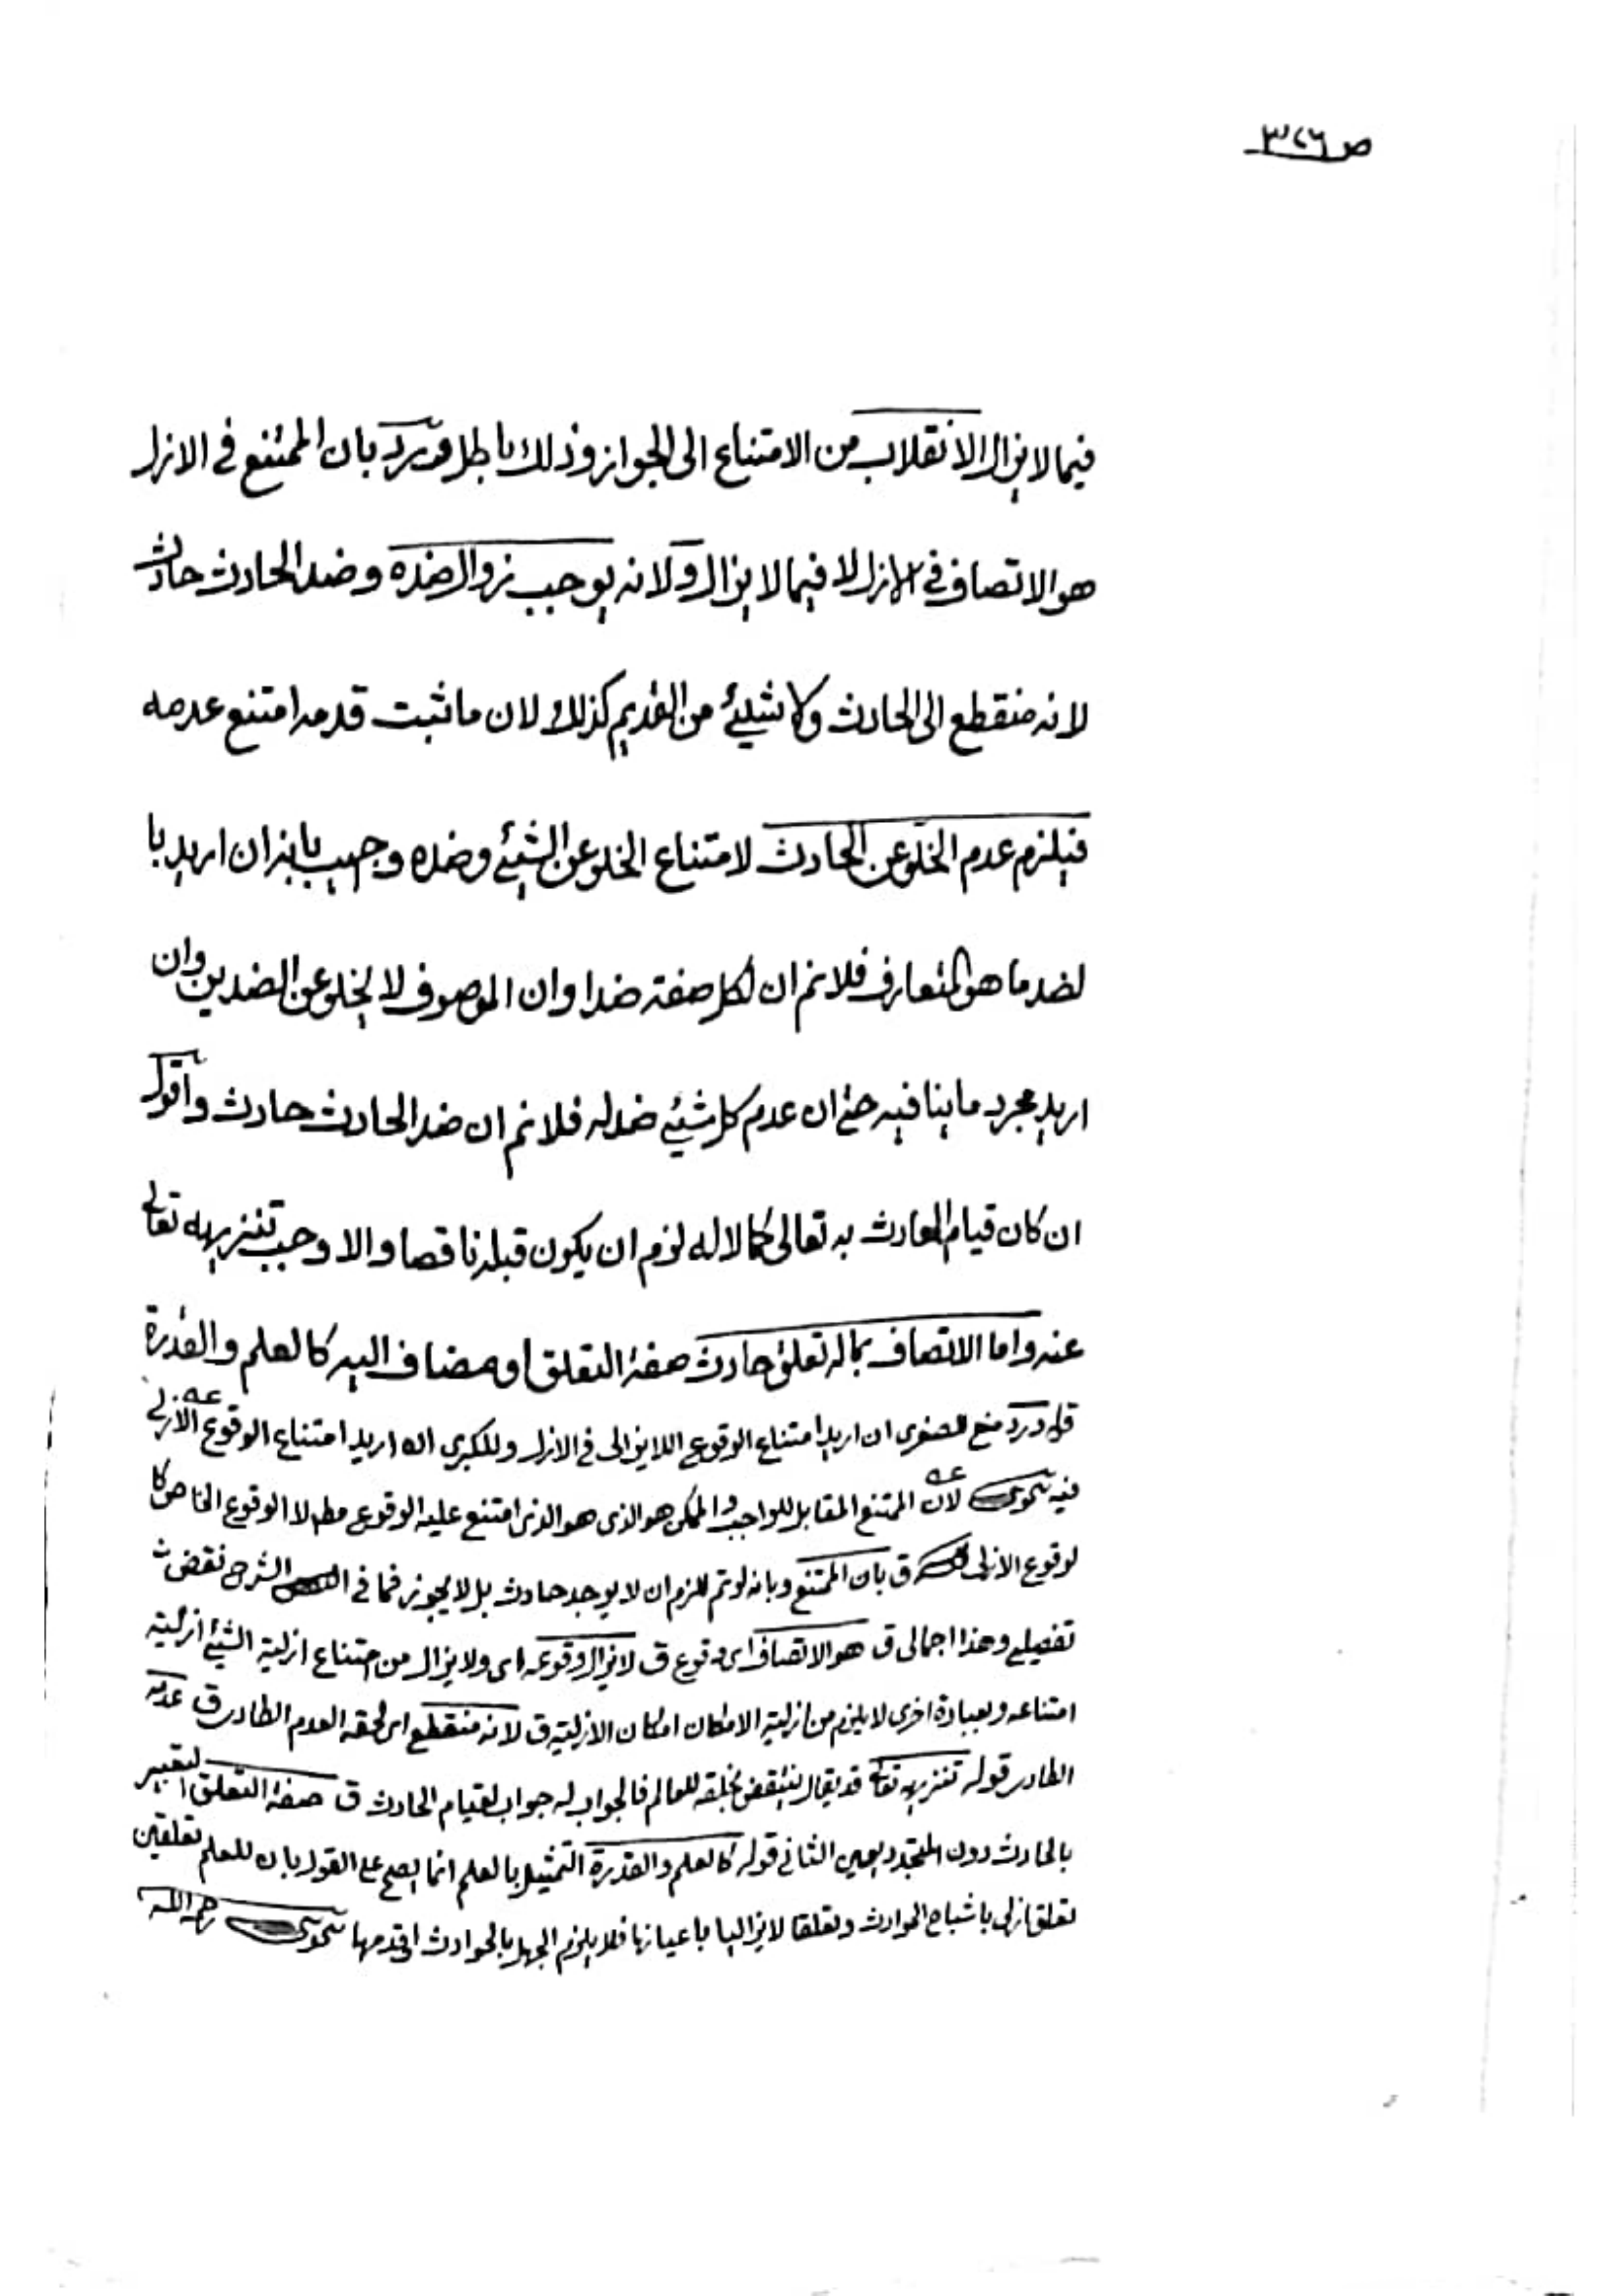 ص ٣٢٦
فيما لا يزال الانقلاب من الامتناع الى الجواز وذلك باطل ورد بان الممتنع في الازل
هو الاتصاف في الازل لا فيما لا يزال ولانه يوجب زوال ضده وضد الحادث حادث
لانه منقطع الى الحادث ولا شيئ من القديم كذلك لان ما ثبت قدمه امتنع عدمه
فيلزم عدم الخلو عن الحادث لامتناع الخلو عن الشيئ وضده وجيب بانه ان اريد با
لضد ما هو المتعارف فلا نم ان لكل صفة ضدا وان الموصوف لا يخلو عن الضدين وان
اريد مجرد ما ينافيه حتى ان عدم كل شيئ ضد له فلا نم ان ضد الحادث حادث واقول
ان كان قيام الحادث به تعالى كمالا له لزم ان يكون قبله ناقصا والا وجب تنزيهه تعالى
عنه واما الاتصاف بما له تعلق حادث صفة التعلق او مضاف اليه كالعلم والقدرة
قوله ورد منع للصغرى ان اريد امتناع الوقوع اللايزالى في الازل وللكبرى ان اريد امتناع الوقوع الازلي
فيه لان الممتنع المقابل للواجب والممكن هو الذى هو الذى امتنع عليه الوقوع مطلا الوقوع الخاص كا
لوقوع الازلى ق بان الممتنع وبانه لو تم للزم ان لا يوجد حادث بل لا يجوز فما في الشرح نقض
تفصيلي وهذا اجمالى ق هو الاتصاف اى وقوع ق لا يزال وقوعه اى ولا يزال من امتناع ازلية الشيئ ازلية
امتناعه وبعبارة اخرى لا يلزم من ازلية الامكان امكان الازلية ق لانه منقطع اى لحقه العدم الطارى ق عدمه
الطارى قوله تنزيهه تعالى قد يقال ينتقض بخلقه للعالم فالجواب له جواب لقيام الحادث ق صفة التعلق التعبير
بالحادث دون المتجدد يعين الثانى قوله كالعلم والقدرة التمثيل بالعلم انما يصح على القول بان للعلم تعلقين
تعلق ازلى باشباح الحوادث وتعلقا لا يزاليا باعيانها فلا يلزم الجهل بالحوادث او قدمها رحمه الله